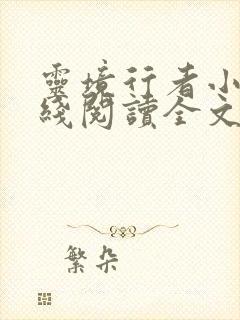 靈境行者小
綫閱讀全文
繁朵